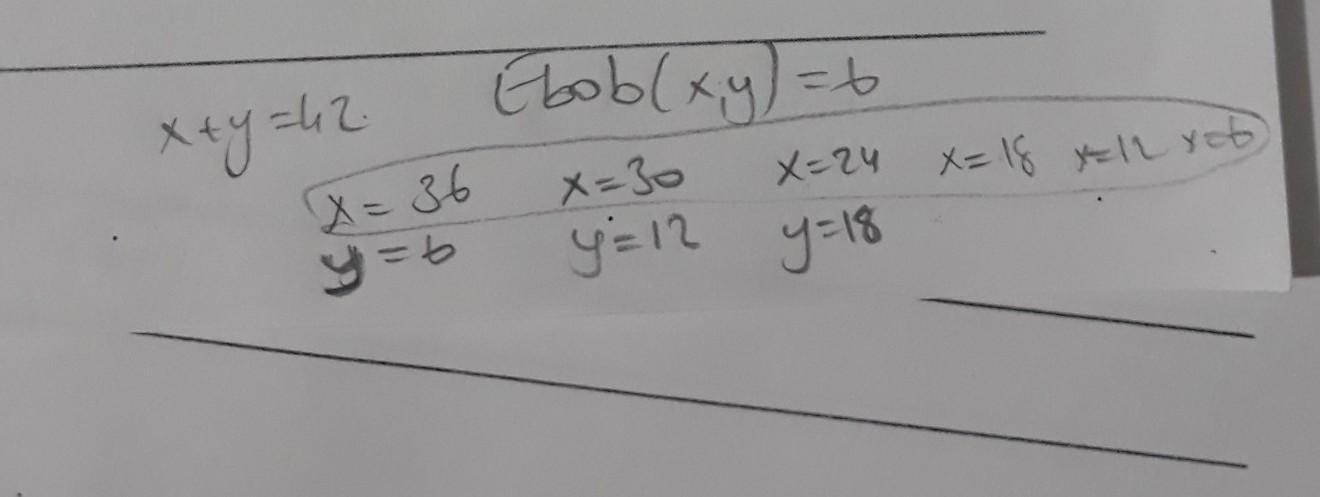 x+y=42 Ebob(x,y)=6
x=36 x=30 x=24 x=18 x=12 x=6
y=6 y=12 y=18